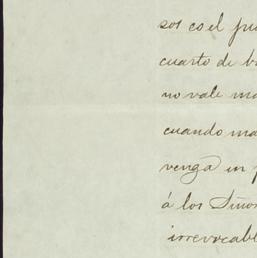 sos co el
cuarto de
no vale
cuando
venga un
á los Señor
irrevocabl